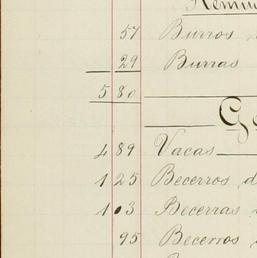 57 Burros
29 Burras
580
Ge
489 Vacas
125 Becerros d
103 Becerras
95 Becerros